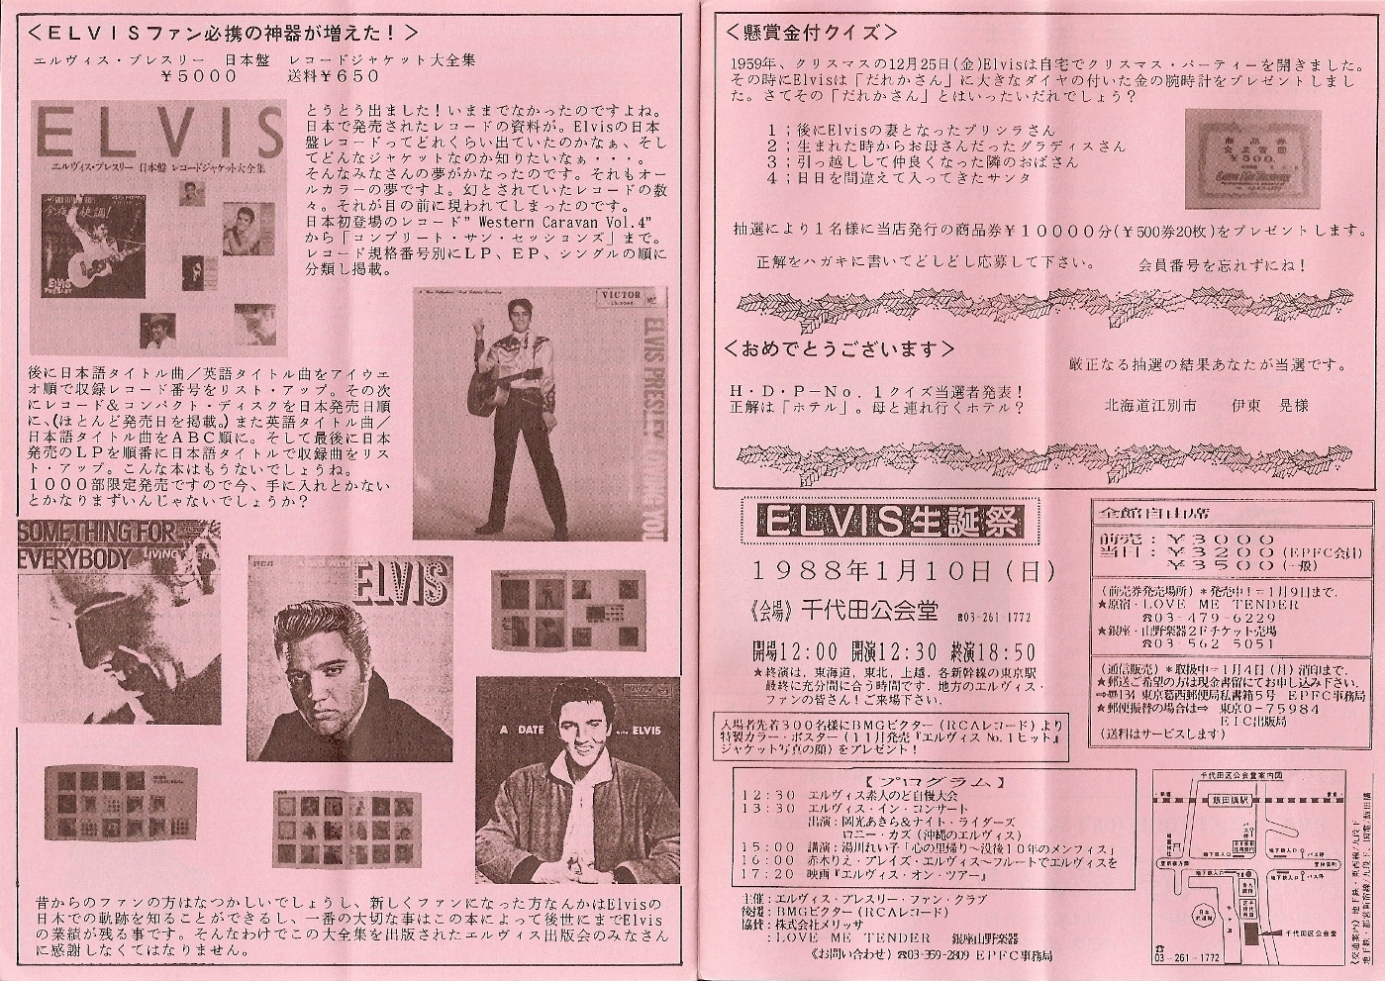 ＜ＥＬＶＩＳファン必携の神器が増えた！＞
エルヴィス・プレスリー　日本盤　レコードジャケット大全集
￥５０００　　送料￥６５０
ELVIS
エルヴィス・プレスリー 日本盤 レコードジャケット大全集
とうとう出ました！いままでなかったのですよね。
日本で発売されたレコードの資料が。Elvisの日本
盤レコードってどれくらい出ていたのかなぁ、そし
てどんなジャケットなのか知りたいなぁ・・・。
そんなみなさんの夢がかなったのです。それもオー
ルカラーの夢ですよ。幻とされていたレコードの数
々。それが目の前に現われてしまったのです。
日本初登場のレコード”Western Caravan Vol.4”
から「コンプリート・サン・セッションズ」まで。
レコード規格番号別にＬＰ、ＥＰ、シングルの順に
分類し掲載。
VICTOR
ELVIS PRESLEY LOVING YOU
後に日本語タイトル曲／英語タイトル曲をアイウエ
オ順で収録レコード番号をリスト・アップ。その次
にレコード＆コンパクト・ディスクを日本発売日順
に、(ほとんど発売日を掲載。)また英語タイトル曲／
日本語タイトル曲をＡＢＣ順に。そして最後に日本
発売のＬＰを順番に日本語タイトルで収録曲をリス
ト・アップ。こんな本はもうないでしょうね。
１０００部限定発売ですので今、手に入れとかない
とかなりまずいんじゃないでしょうか？
SOMETHING FOR
EVERYBODY
ELVIS
A DATE with ELVIS
昔からのファンの方はなつかしいでしょうし、新しくファンになった方なんかはElvisの
日本での軌跡を知ることができるし、一番の大切な事はこの本によって後世にまでElvis
の業績が残る事です。そんなわけでこの大全集を出版されたエルヴィス出版会のみなさん
に感謝しなくてはなりません。
＜懸賞金付クイズ＞
1959年、クリスマスの12月25日(金)Elvisは自宅でクリスマス・パーティーを開きました。
その時にElvisは「だれかさん」に大きなダイヤの付いた金の腕時計をプレゼントしまし
た。さてその「だれかさん」とはいったいだれでしょう？
１；後にElvisの妻となったプリシラさん
２；生まれた時からお母さんだったグラディスさん
３；引っ越しして仲良くなった隣のおばさん
４；日日を間違えて入ってきたサンタ
商品券
￥500
抽選により１名様に当店発行の商品券￥１００００分(￥500券20枚)をプレゼントします。
正解をハガキに書いてどしどし応募して下さい。　　会員番号を忘れずにね！
＜おめでとうございます＞
厳正なる抽選の結果あなたが当選です。
Ｈ・Ｄ・Ｐ－Ｎｏ．１クイズ当選者発表！
正解は「ホテル」。母と連れ行くホテル？
北海道江別市　　伊東　晃様
ＥＬＶＩＳ生誕祭
１９８８年１月１０日（日）
《会場》千代田公会堂 ☎03-261-1772
開場12:00 開演12:30 終演18:50
★終演は、東海道、東北、上越、各新幹線の東京駅
最終に充分間に合う時間です。地方のエルヴィス・
ファンの皆さん！ご来場下さい。
入場者先着３００名様にＢＭＧビクター（ＲＣＡレコード）より
特製カラー・ポスター（１１月発売『エルヴィス No.１ヒット』
ジャケット写真の顔）をプレゼント！
全館自由席
前売：￥３０００
当日：￥３２００(ＥＰＦＣ会計)
￥３５００(一般)
（前売券発売場所）＊発売中！＝１月９日まで．
★原宿・ＬＯＶＥ　ＭＥ　ＴＥＮＤＥＲ
☎０３－４７９－６２２９
★銀座・山野楽器２Ｆチケット売場
☎０３　５６２　５０５１
（通信販売）＊取扱中＝１月４日（月）消印まで．
★郵送ご希望の方は現金書留にてお申し込み下さい．
⇒〒134 東京葛西郵便局私書箱５号　ＥＰＦＣ事務局
★郵便振替の場合は⇒　東京０－７５９８４
ＥＩＣ出版局
（送料はサービスします）
【プログラム】
１２：３０　エルヴィス素人のど自慢大会
１３：３０　エルヴィス・イン・コンサート
出演：岡光あきら＆ナイト・ライダーズ
ロニー・カズ（沖縄のエルヴィス）
１５：００　講演：湯川れい子「心の里帰り～没後１０年のメンフィス」
１６：００　赤木りえ・プレイズ・エルヴィス～フルートでエルヴィスを
１７：２０　映画『エルヴィス・オン・ツアー』
主催：エルヴィス・プレスリー・ファン・クラブ
後援：ＢＭＧビクター（ＲＣＡレコード）
協賛：株式会社メリッサ
：ＬＯＶＥ　ＭＥ　ＴＥＮＤＥＲ　　銀座山野楽器
《お問い合わせ》☎03-359-2809 ＥＰＦＣ事務局
千代田区公会堂案内図
飯田橋駅
千代田区公会堂
☎
03-261-1772